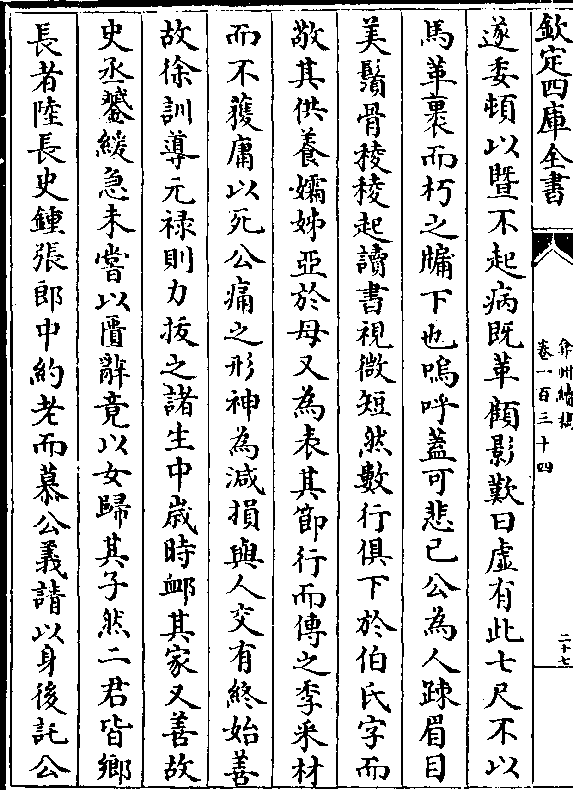 欽定四庫全書
弇州續稿
卷一百三十四
二十七
遂委頓以暨不起病既革顧影歎曰虚有此七尺不以
馬革裹而朽之牖下也嗚呼蓋可悲已公為人踈眉目
美鬚骨稜稜起讀書視微短然數行俱下於伯氏字而
敬其供養孀姊亞於母又為表其節行而傳之季釆材
而不獲庸以死公痛之形神為減損與人交有終始善
故徐訓導元禄則力㧞之諸生中歳時䘏其家又善故
史丞鑾緩急未嘗以匱辭竟以女歸其子然二君皆鄉
長者陸長史鍾張郎中約老而慕公義請以身後託公